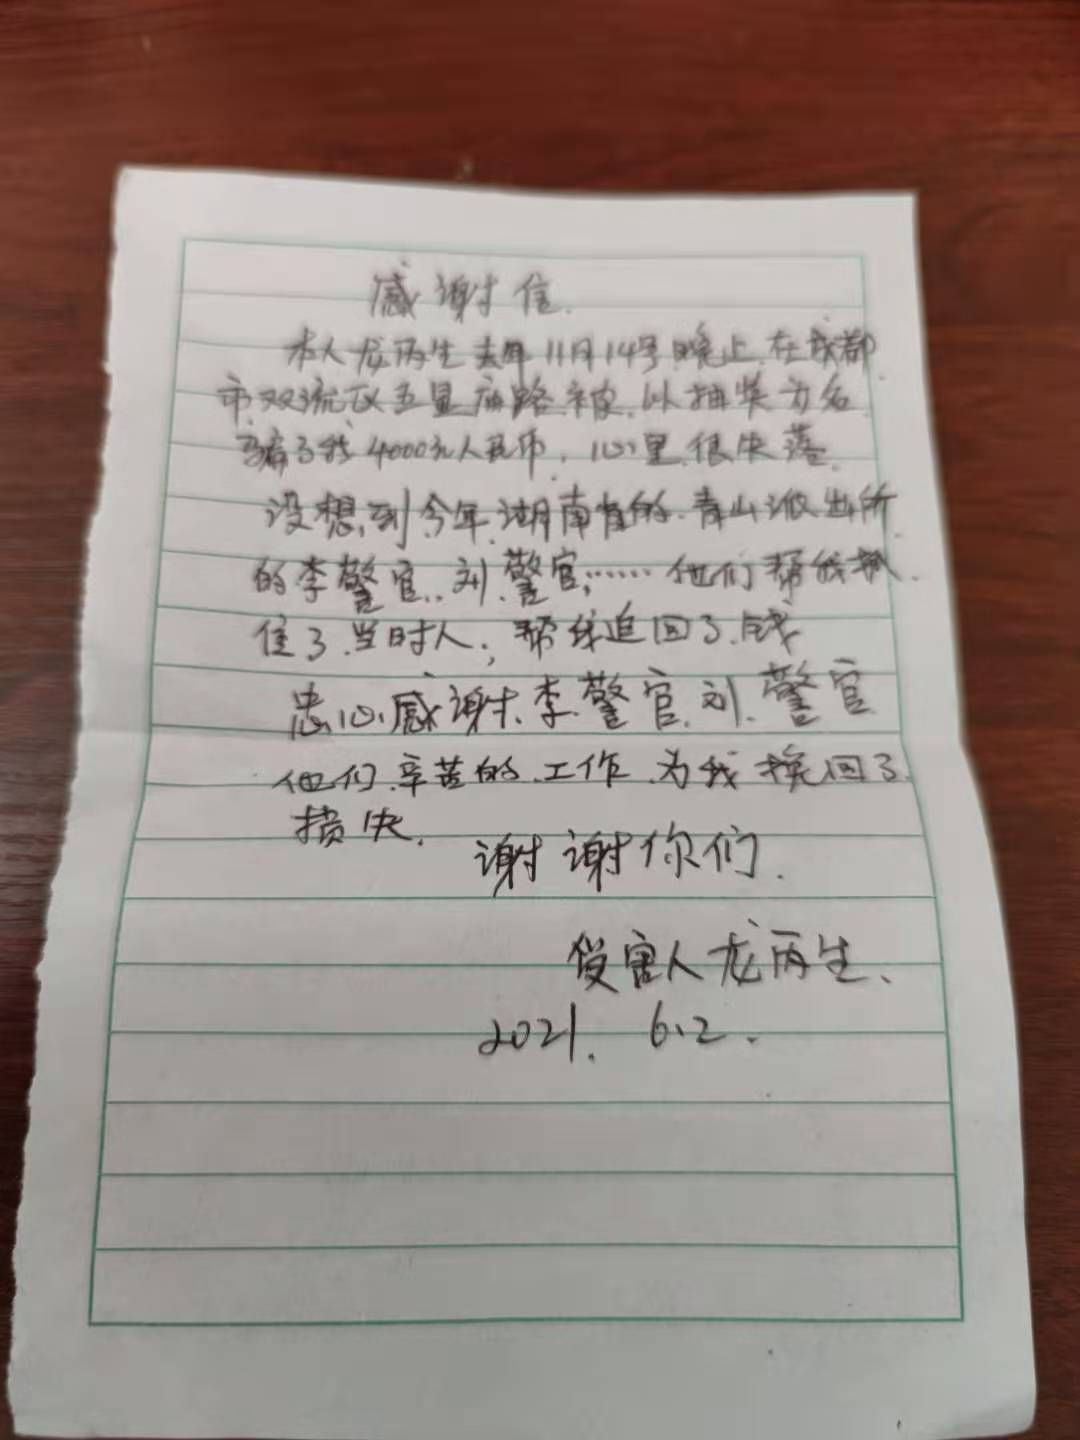 感谢信.
本人龙丙生去年11月14号晚上.在成都
市双流区五星庙路.被.以抽奖为名
骗了我4000元人民币.心里.很失落.
没想到今年.湖南省的.青山派出所
的李警官..刘.警官;……他们帮我抓.
住了.当时人;帮我追回了.钱
忠心.感谢.李.警官.刘.警官
他们.辛苦的.工作.为我换回了.
损失.
谢谢你们.
受害人龙丙生、
2021. 6.2.